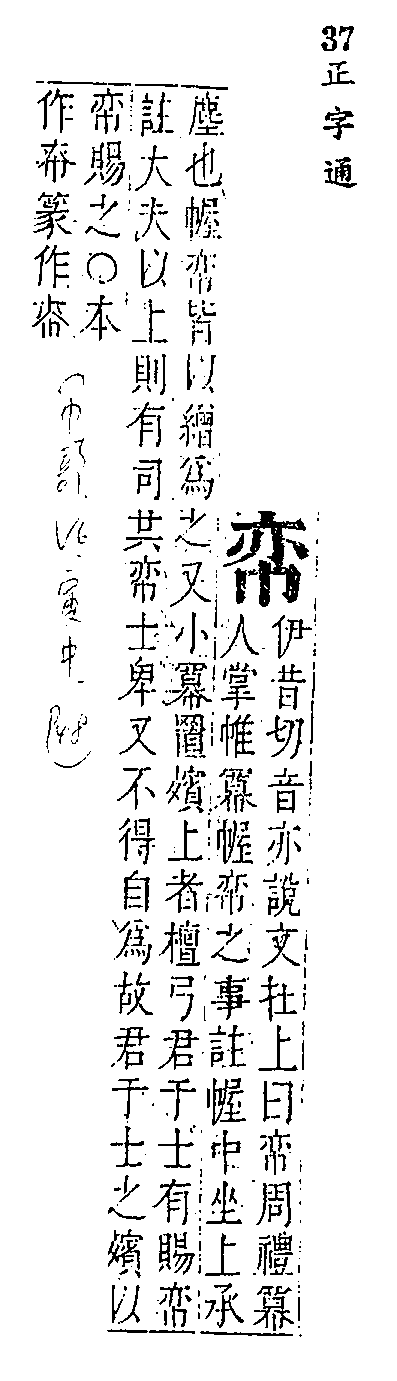 37 正字通
帟
伊昔切音亦說文在上曰帟周禮冪
人掌帷冪幄帟之事註幄中坐上承
塵也幄帟皆以繒爲之又小冪置殯上者檀弓君于士有賜帟
註大夫以上則有司共帟士卑又不得自爲故君于士之殯以
帟賜之○本
作篆作
(巾部 寅中